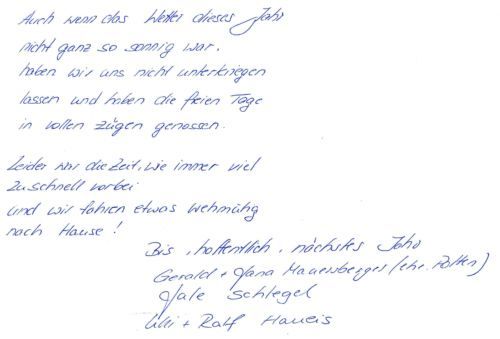 Auch wenn das Wetter dieses Jahr
nicht ganz so sonnig war,
haben wir uns nicht unterkriegen
lassen und haben die freien Tage
in vollen Zügen genossen.
Leider war die Zeit, wie immer viel
zu schnell vorbei
und wir fahren etwas wehmütig
nach Hause!
Bis, hoffentlich, nächstes Jahr
Gerald + Jana Mauersberger (ehe.
Jale Schlegel
Ulli + Ralf